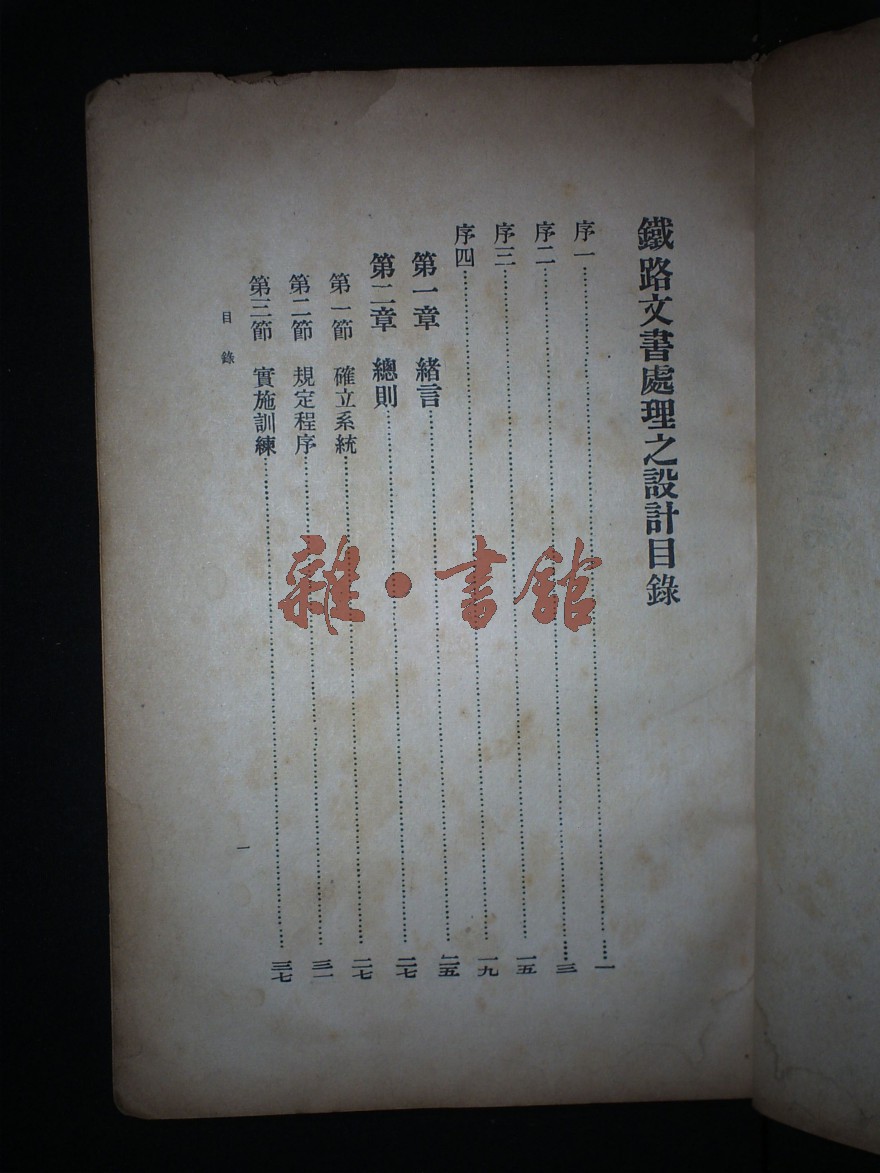 鐵路文書處理之設計目錄
序一……一
序二……三
序三……一五
序四……一九
第一章 緒言……二五
第二章 總則……二七
第一節 確立系統……二七
第二節 規定程序……三一
第三節 實施訓練……三七
目錄
一
雜·書館